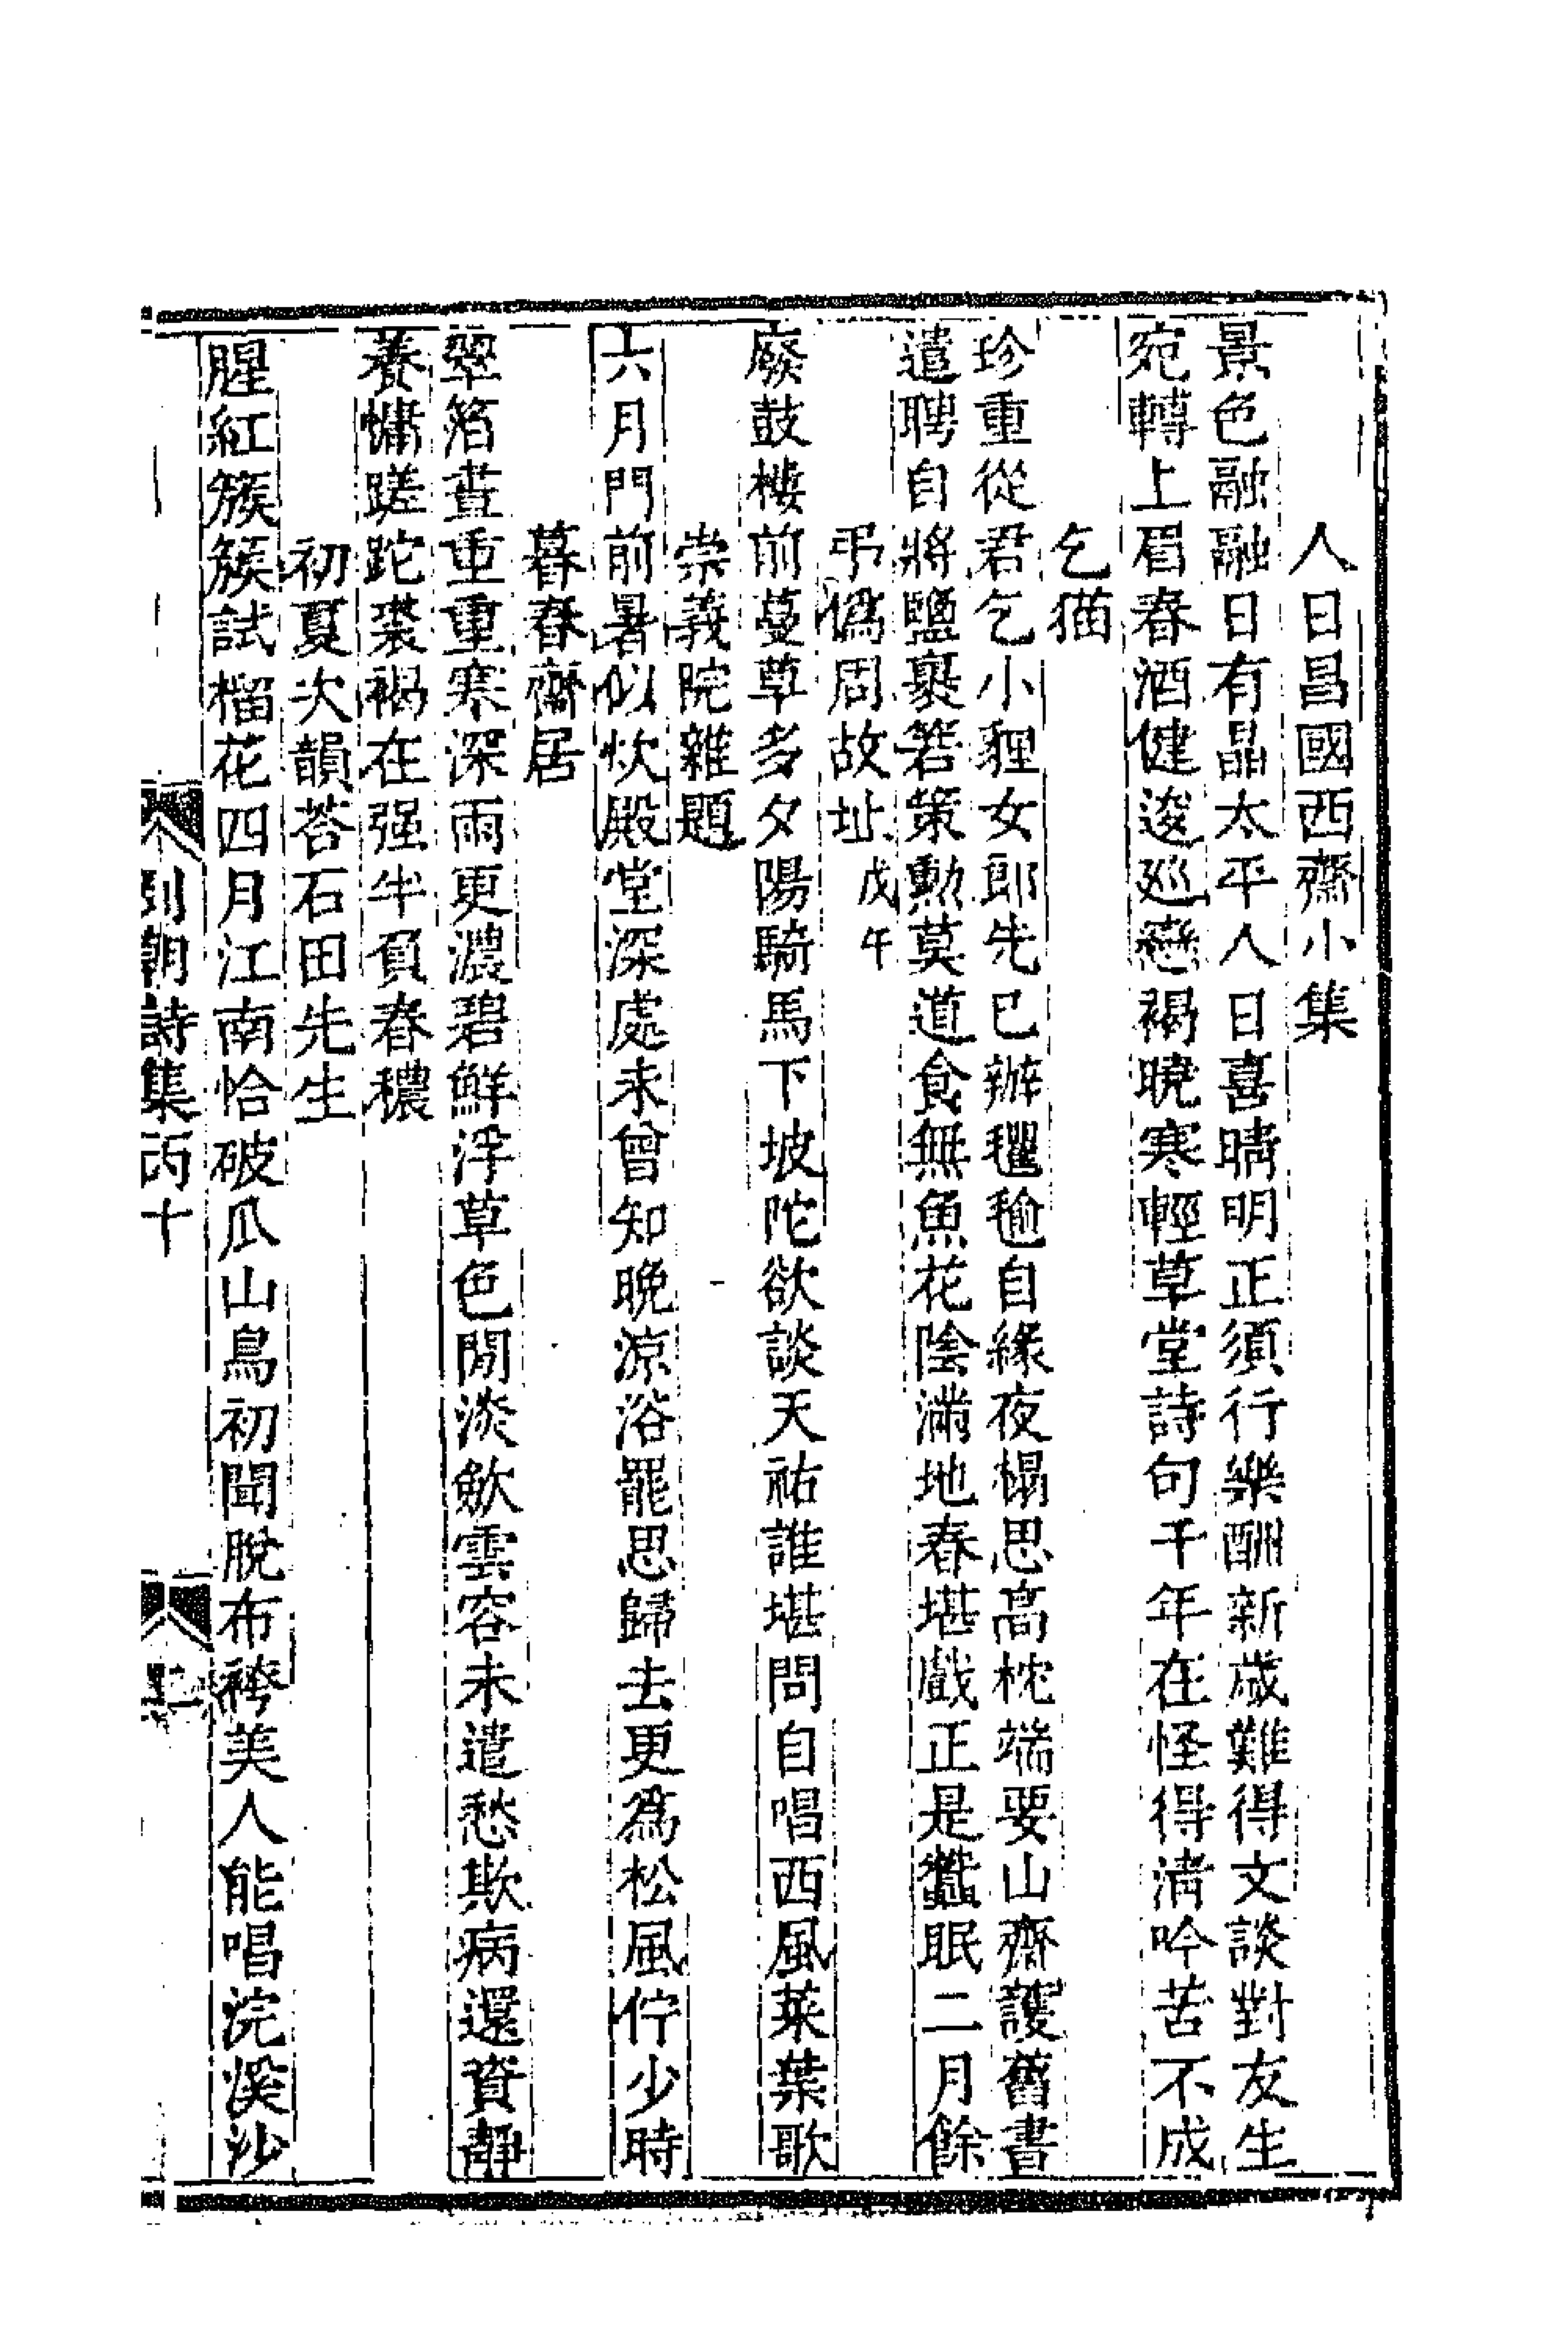 人日昌國西齋小集
景色融融日有晶太平人日喜晴明正須行樂酬新歲難得文談對友生
宛轉上眉春酒健逡廵戀褐曉寒輕草堂詩句千年在怪得清吟苦不成
乞猫
珍重從君乞小貍女郎先已辦氍毹自緣夜榻思高枕端要山齋護舊書
遣聘自將鹽裹箬策勳莫道食無魚花陰滿地春堪戲正是蠶眠二月餘
弔僞周故址戊午
廢鼓樓前蔓草多夕陽騎馬下坡陀欲談天祐誰堪問自唱西風萊葉歌
崇義院雜題
六月門前暑似炊殿堂深處未曾知晚涼浴罷思歸去更爲松風佇少時
暮春齋居
翠箔晝重重寒深雨更濃碧鮮浮草色閒淡歛雲容未遣愁欺病還資靜
養慵蹉跎裘褐在强半負春穠
初夏次韻荅石田先生
腥紅簇簇試榴花四月江南恰破瓜山鳥初聞脫布袴美人能唱浣溪沙
列朝詩集丙十